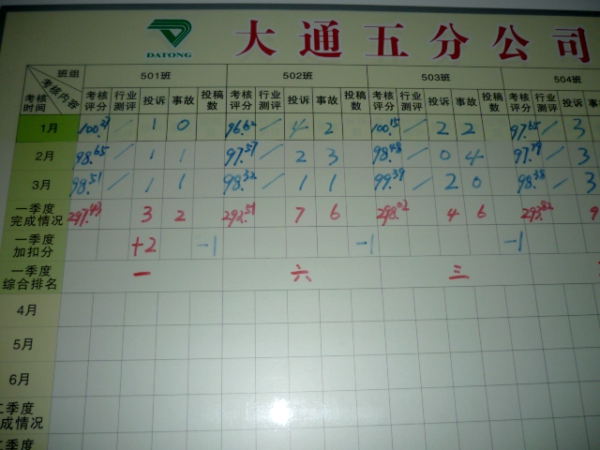 DATONG
大通五分公司
班组 501班 502班 503班 504班
考核内容
考核时间 考核评分 行业测评 投诉 事故 投稿数 考核评分 行业测评 投诉 事故 投稿数 考核评分 行业测评 投诉 事故 投稿数 考核评分 行业测评 投诉
1月 / 1 0 96.62 / 4 2 100.15 / 2 2 97.65 / 3
2月 98.65 / 1 1 97.57 / 2 3 98.48 / 0 4 97.79 / 3
3月 98.51 / 1 1 98.32 / 1 1 99.39 / 2 0 98.38 / 3
一季度完成情况 297.43 3 2 292.51 7 6 298.02 4 6 293.82 9
一季度加扣分 +2 -1 -1 -1
一季度综合排名 一 六 三
4月
5月
6月
二季度完成情况
二季度